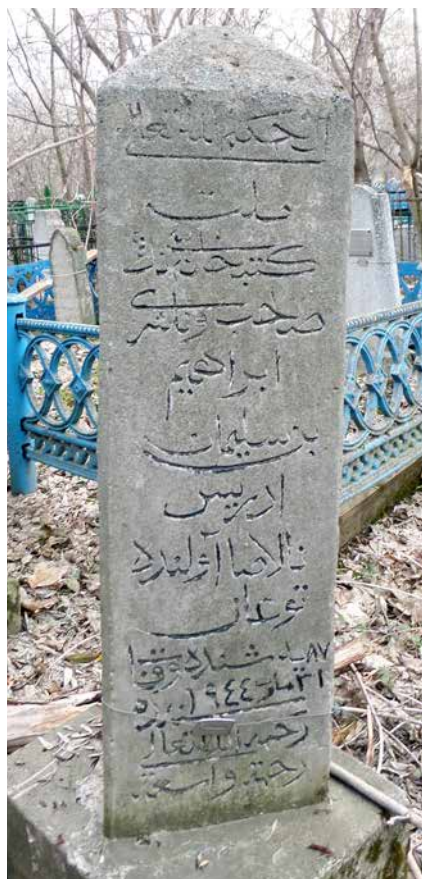 الحكم لله تعالى
ملت
كتبخانه سينڭ
صاحب و ناشرى
ابراهيم
بن سليمان
ادريس
نالاصا آولنده
توغان
٨٧ ياشنده وفات
٣١ مارت ١٩٤٤ نده
رحمه الله تعالى
رحمة واسعة